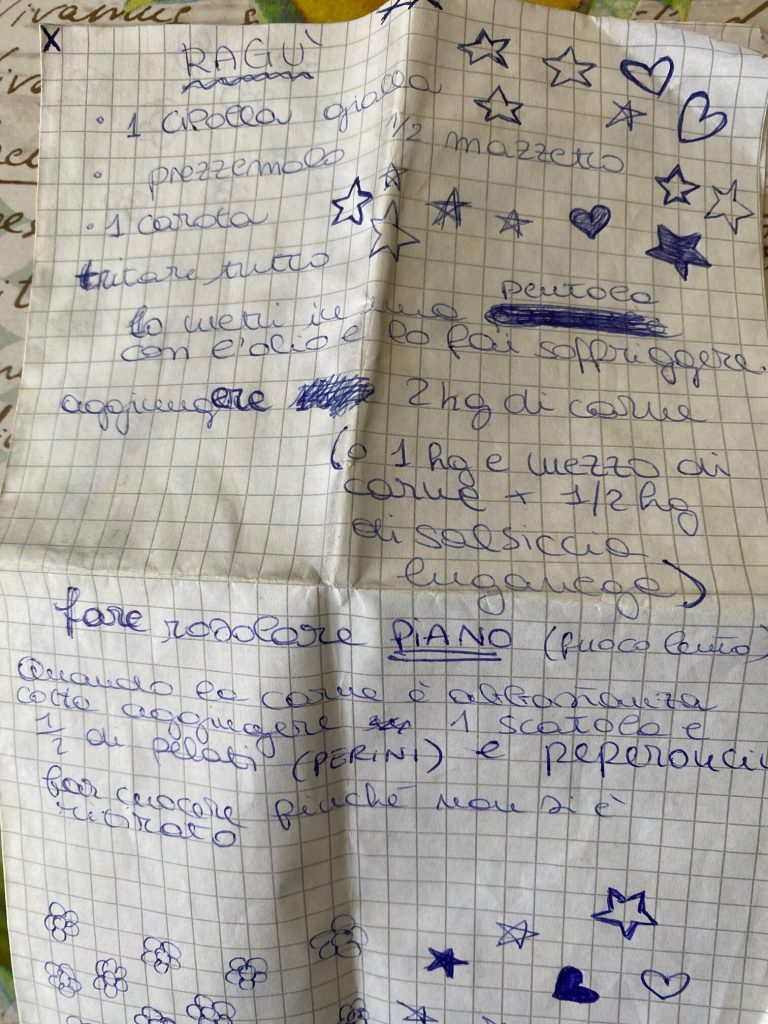 Vivamus
RAGÙ
• 1 cipolla gialla
• prezzemolo 1/2 mazzetto
• 1 carota
tritare tutto
lo metti in una pentola
con l'olio e lo fai soffriggere.
aggiungere 2 hg di carne
(o 1 hg e mezzo di
carne + 1/2 hg
di salsiccia
luganega)
fare rosolare PIANO (fuoco lento)
Quando la carne è abbastanza
cotta aggiungere 1 scatola e
1/2 di pelati (PERINI) e
far cuocere finché non si è
ritirato